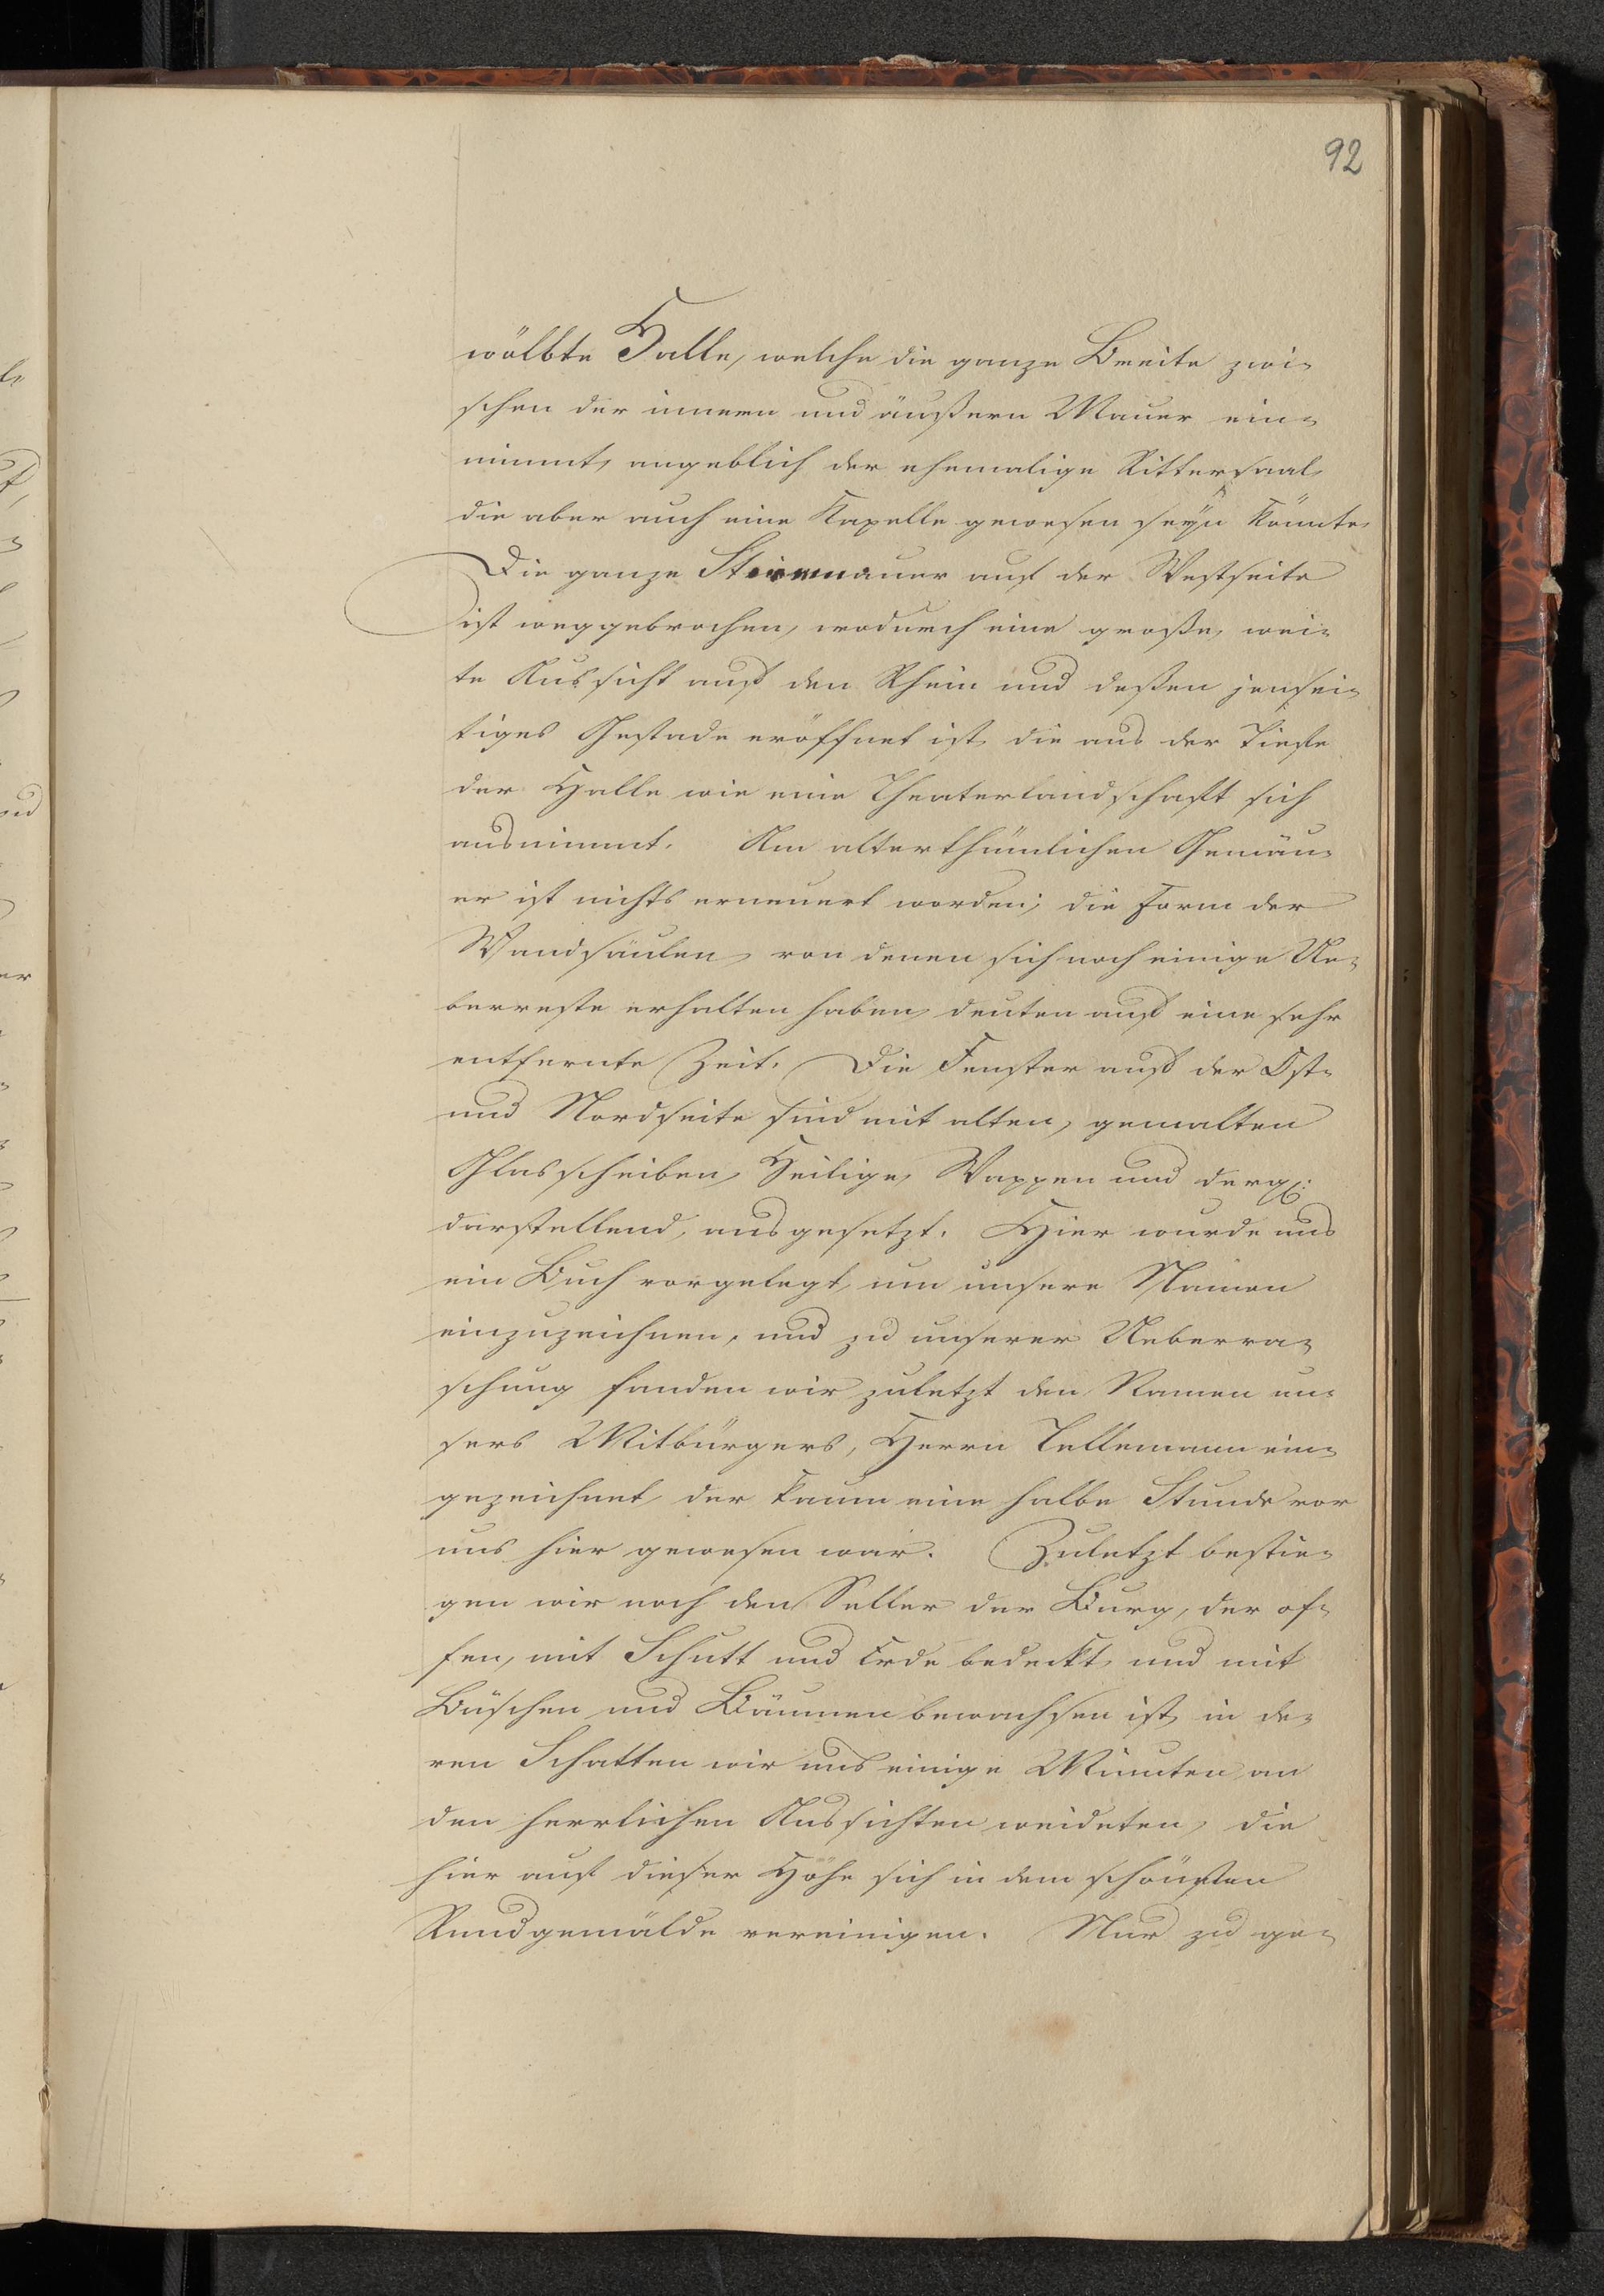 92
wölbte Halle, welche die ganze Breite zwi-
schen der innern und äußern Mauer ein-
nimmt, angeblich der ehemalige Rittersaal,
die aber auch eine Kapelle gewesen seyn könnte.
Die ganze Stirnmauer auf der Westseite
ist weggebrochen, wodurch eine große, wei-
te Aussicht auf den Rhein und deßen jensei-
tiges Gestade eröffnet ist, die aus der Tiefe
der Halle wie eine Theaterlandschaft sich
ausnimmt. Am alterthümlichen Gemäu-
er ist nichts erneuert worden; die Form der
Wandsäulen, von denen sich noch einige Ue-
berreste erhalten haben, deuten auf eine sehr
entfernte Zeit. Die Fenster auf der Ost-
und Nordseite sind mit alten, gemalten
Glasscheiben, Heilige, Wappen und dergl:
darstellend, ausgesetzt. Hier wurde uns
ein Buch vorgelegt, um unsere Namen
einzuzeichnen, und zu unserer Ueberra-
schung fanden wir zuletzt den Namen un-
sers Mitbürgers, Herrn Tellemann ein-
gezeichnet, der kaum eine halbe Stunde vor
uns hier gewesen war. Zuletzt bestie-
gen wir noch den Söller der Burg, der of-
fen, mit Schutt und Erde bedeckt, und mit
Büschen und Bäumen bewachsen ist, in de-
ren Schatten wir uns einige Minuten an
den herrlichen Aussichten weideten, die
hier auf dieser Höhe sich in dem schönsten
Rundgemälde vereinigen. Nur zu ge-